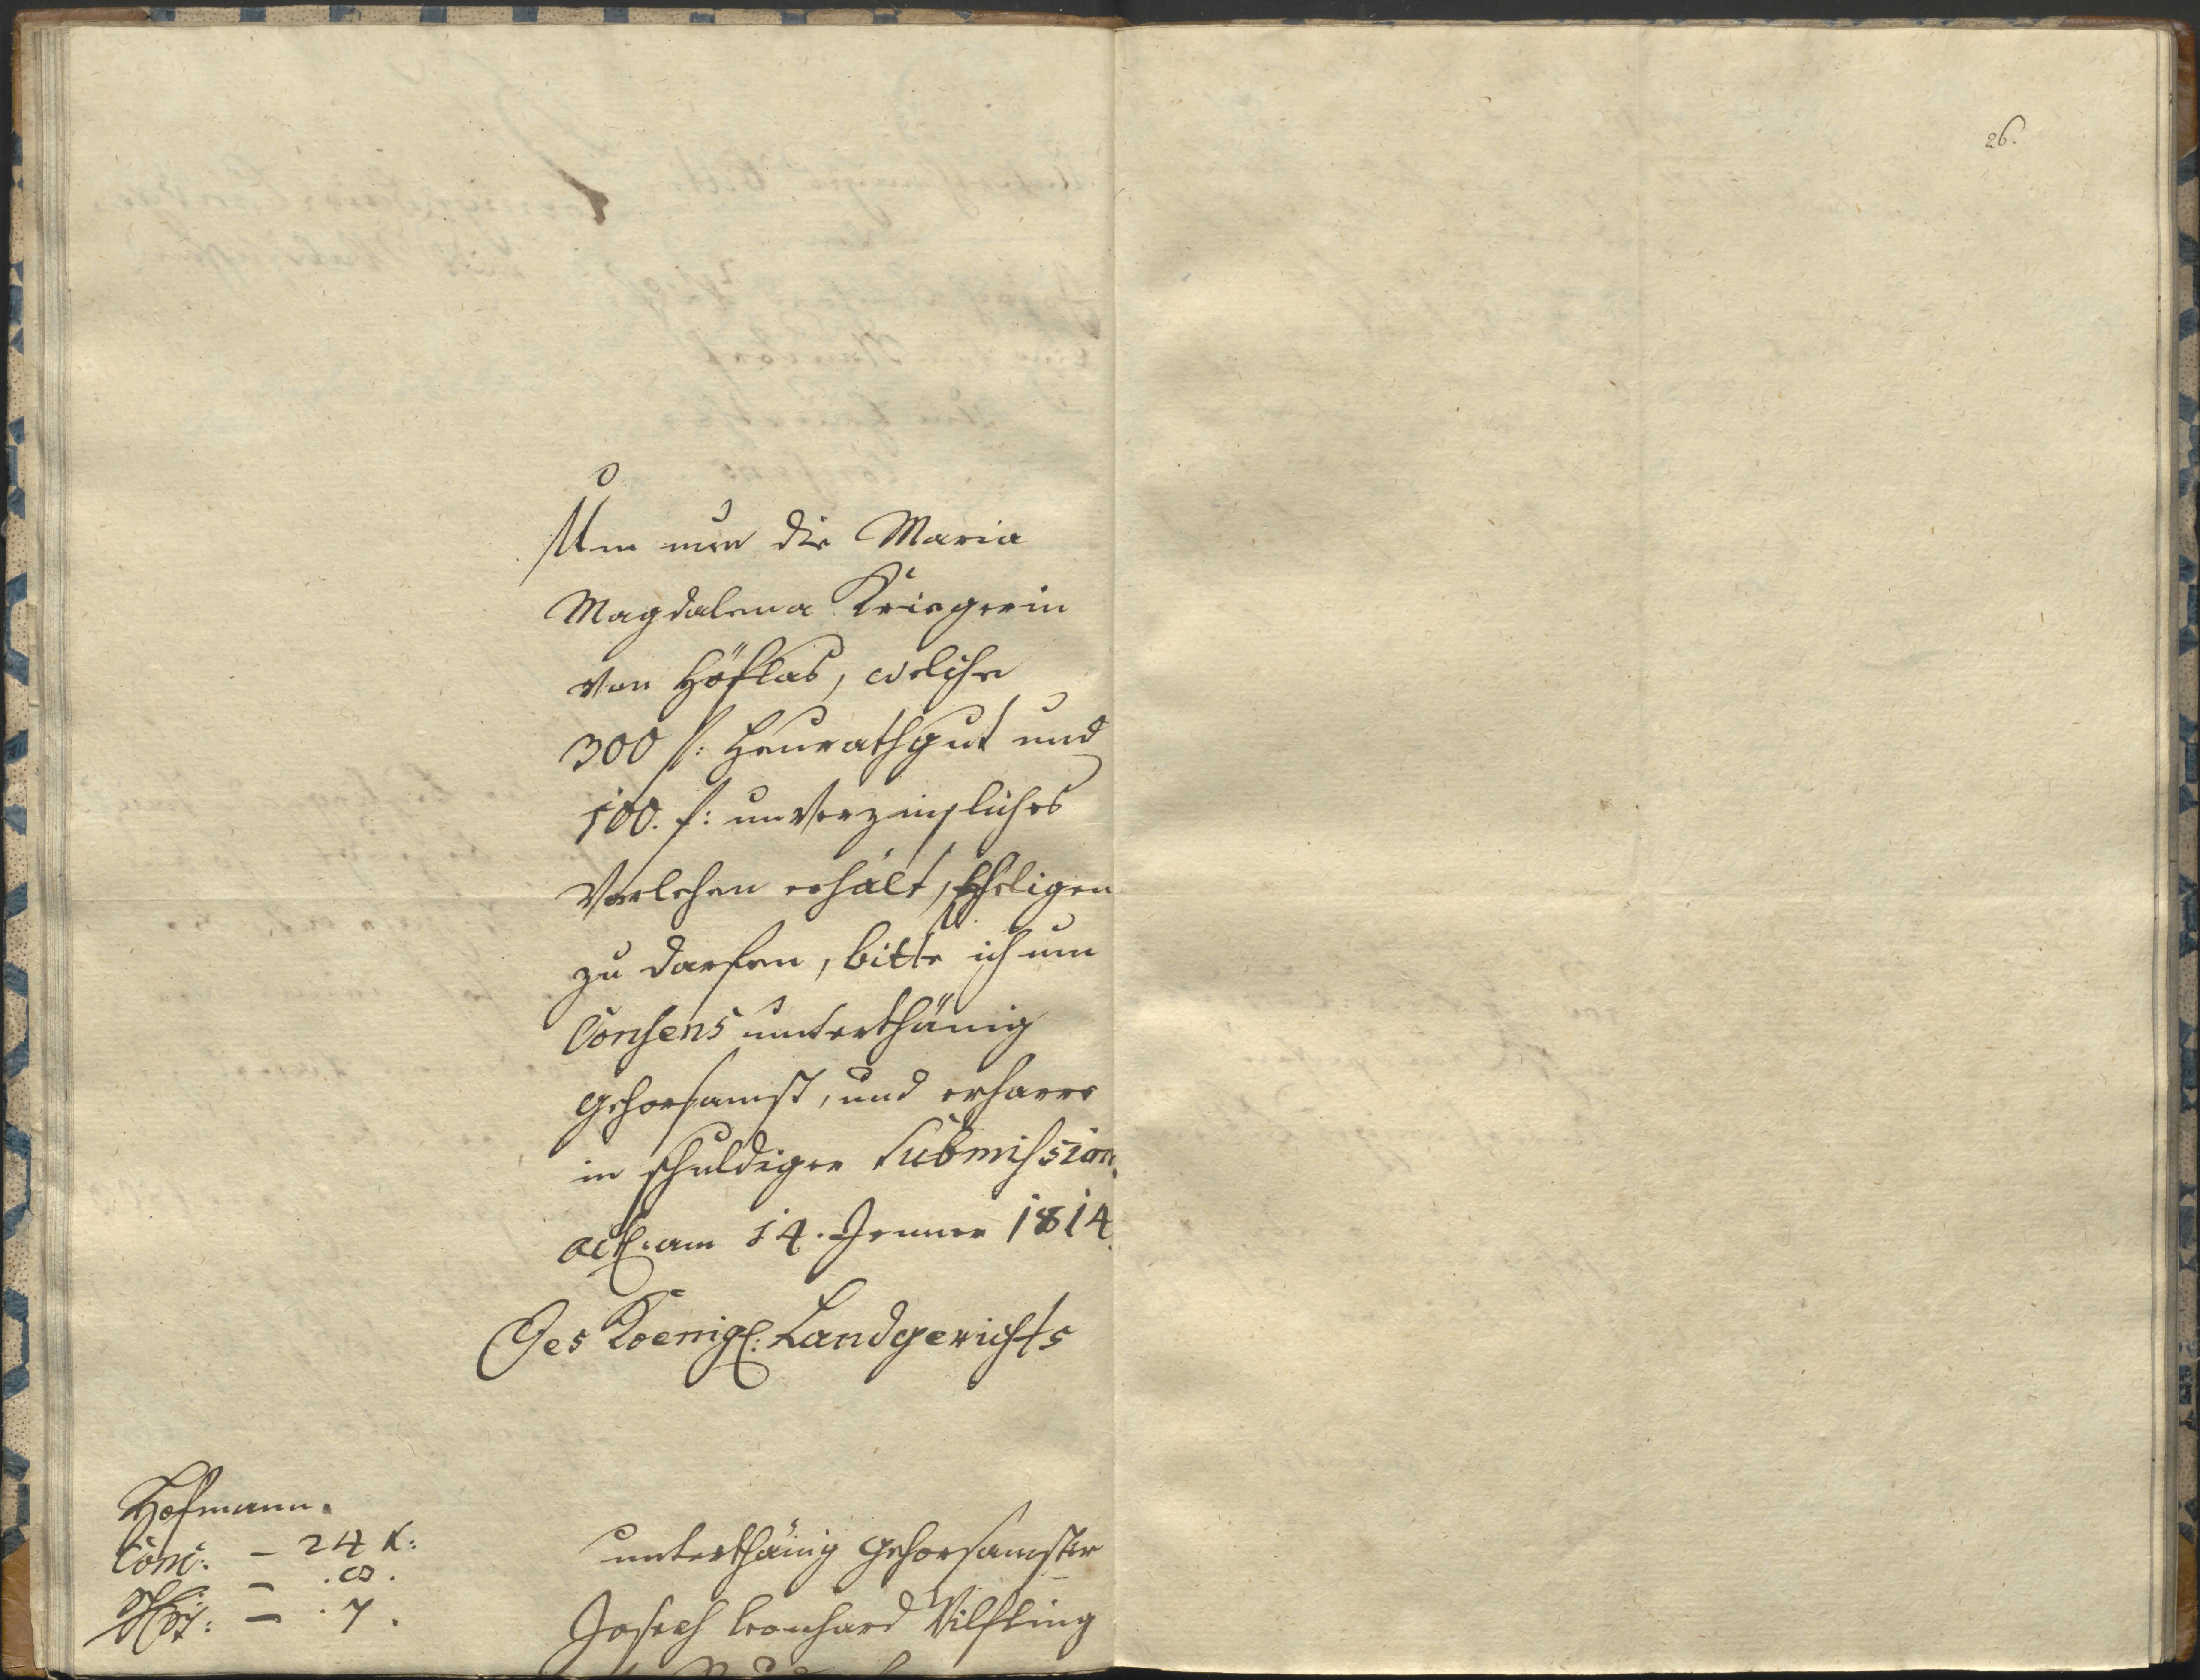 26.
Um nun die Maria
Magdalena Kriegerin
von Höflas, welche
300 f: Heurathgut und
100. f: unverzinßliches
Vorlehen erhält, Eheligen
zu darfen, bitte ich um
Consens unterthänig
gehorsamst, und erharre
in schuldiger Submission.
act. am 14. Jenner 1814.
Des Koenigl: Landgerichts
Hofmann.
Com: – 24 K:
– . 8 .
– . 7 .
unterthänig gehorsamster
Joseph Leonhard Vilßling